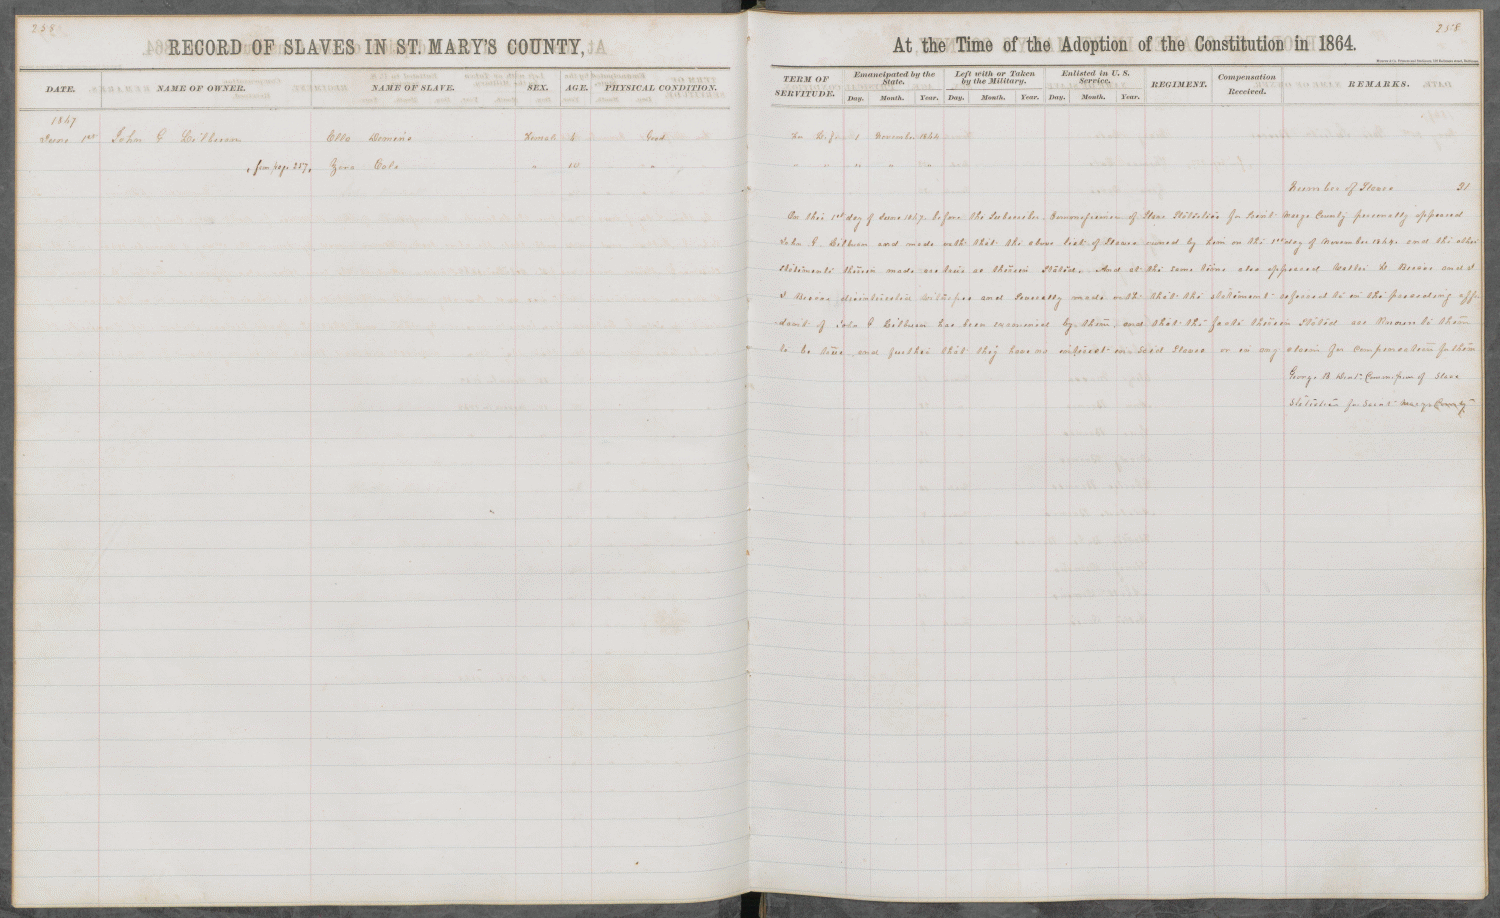 258
RECORD OF SLAVES IN ST. MARY'S COUNTY,
DATE. NAME OF OWNER. NAME OF SLAVE. SEX. AGE. PHYSICAL CONDITION.
1867
June 1st John G Female 4 Good
from page 257. Cole " 10 "
258
At the Time of the Adoption of the Constitution in 1864.
TERM OF SERVITUDE. Emancipated by the State. Left with or Taken by the Military. Enlisted in U. S. Service. REGIMENT. Compensation Received. REMARKS.
Day. Month. Year. Day. Month. Year. Day. Month. Year.
For Life 1 November 1864
" " " " "
Number of Slaves 31
On this 1st day of June 1867. before the Subscriber, Commissioner of Slave Statistics for Saint Marys County personally appeared
John G and made oath that the above list of Slaves owned by him on the 1st day of November 1864. and the other
statements therein made are true as therein stated. And at the same time also appeared and
disinterested witnesses and severally made oath that the statement referred to in the preceding affi-
davit of John G has been examined by them, and that the facts therein stated are known to them
to be true, and further that they have no interest in said Slaves or in any claim for compensation for them
George B. Commissioner of Slave
Statistics for Saint Marys County